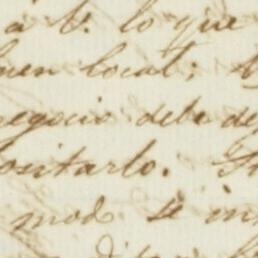 a V. lo que
uen local;
egocio debe de
ositarlo.
mod se in